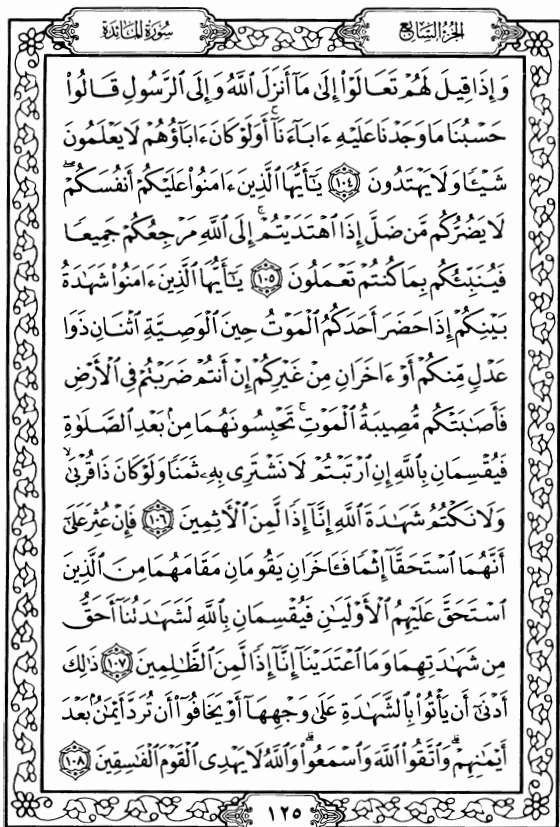 سُورَةُ المَائدَة
الجُزءُ السَّابِع
وَإِذَا قِيلَ لَهُمْ تَعَالَوْا۟ إِلَىٰ مَآ أَنزَلَ ٱللَّهُ وَإِلَى ٱلرَّسُولِ قَالُوا۟
حَسْبُنَا مَا وَجَدْنَا عَلَيْهِ ءَابَآءَنَآ ۚ أَوَلَوْ كَانَ ءَابَآؤُهُمْ لَا يَعْلَمُونَ
شَيْـًٔا وَلَا يَهْتَدُونَ ﴿١٠٤﴾ يَـٰٓأَيُّهَا ٱلَّذِينَ ءَامَنُوا۟ عَلَيْكُمْ أَنفُسَكُمْ ۖ
لَا يَضُرُّكُم مَّن ضَلَّ إِذَا ٱهْتَدَيْتُمْ ۚ إِلَى ٱللَّهِ مَرْجِعُكُمْ جَمِيعًا
فَيُنَبِّئُكُم بِمَا كُنتُمْ تَعْمَلُونَ ﴿١٠٥﴾ يَـٰٓأَيُّهَا ٱلَّذِينَ ءَامَنُوا۟ شَهَـٰدَةُ
بَيْنِكُمْ إِذَا حَضَرَ أَحَدَكُمُ ٱلْمَوْتُ حِينَ ٱلْوَصِيَّةِ ٱثْنَانِ ذَوَا
عَدْلٍ مِّنكُمْ أَوْ ءَاخَرَانِ مِنْ غَيْرِكُمْ إِنْ أَنتُمْ ضَرَبْتُمْ فِى ٱلْأَرْضِ
فَأَصَـٰبَتْكُم مُّصِيبَةُ ٱلْمَوْتِ ۚ تَحْبِسُونَهُمَا مِنۢ بَعْدِ ٱلصَّلَوٰةِ
فَيُقْسِمَانِ بِٱللَّهِ إِنِ ٱرْتَبْتُمْ لَا نَشْتَرِى بِهِۦ ثَمَنًا وَلَوْ كَانَ ذَا قُرْبَىٰ ۙ
وَلَا نَكْتُمُ شَهَـٰدَةَ ٱللَّهِ إِنَّآ إِذًا لَّمِنَ ٱلْـَٔاثِمِينَ ﴿١٠٦﴾ فَإِنْ عُثِرَ عَلَىٰٓ
أَنَّهُمَا ٱسْتَحَقَّآ إِثْمًا فَـَٔاخَرَانِ يَقُومَانِ مَقَامَهُمَا مِنَ ٱلَّذِينَ
ٱسْتَحَقَّ عَلَيْهِمُ ٱلْأَوْلَيَـٰنِ فَيُقْسِمَانِ بِٱللَّهِ لَشَهَـٰدَتُنَآ أَحَقُّ
مِن شَهَـٰدَتِهِمَا وَمَا ٱعْتَدَيْنَآ إِنَّآ إِذًا لَّمِنَ ٱلظَّـٰلِمِينَ ﴿١٠٧﴾ ذَٰلِكَ
أَدْنَىٰٓ أَن يَأْتُوا۟ بِٱلشَّهَـٰدَةِ عَلَىٰ وَجْهِهَآ أَوْ يَخَافُوٓا۟ أَن تُرَدَّ أَيْمَـٰنٌۢ بَعْدَ
أَيْمَـٰنِهِمْ ۗ وَٱتَّقُوا۟ ٱللَّهَ وَٱسْمَعُوا۟ ۗ وَٱللَّهُ لَا يَهْدِى ٱلْقَوْمَ ٱلْفَـٰسِقِينَ ﴿١٠٨﴾
١٢٥